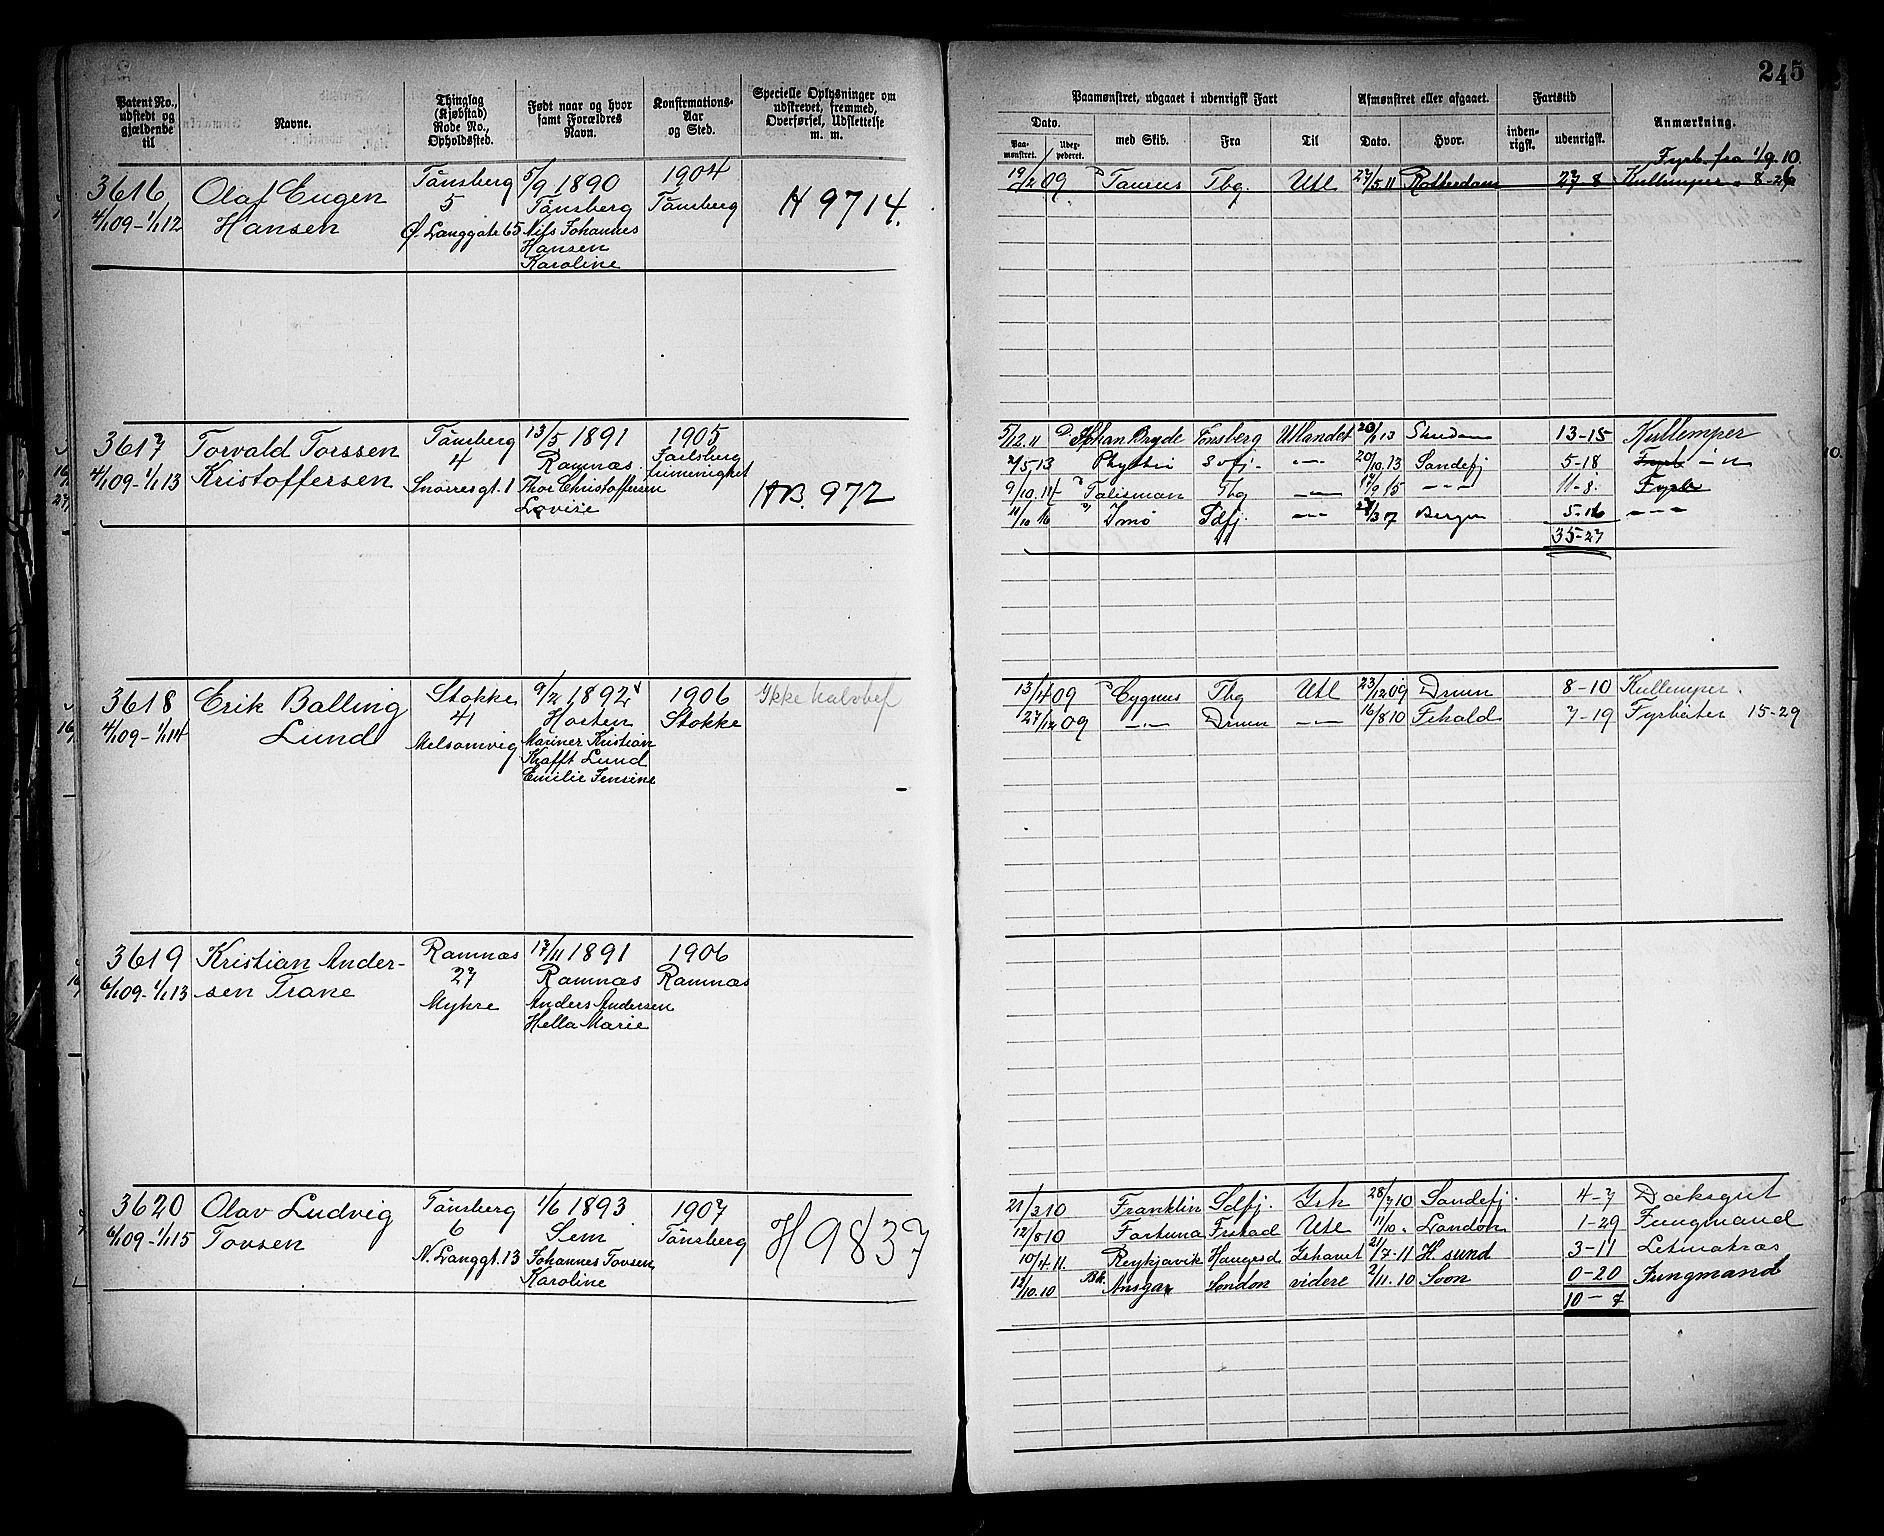 245
Patent No., udstedt og gjældende til
Navne.
Thinglag (Kjøbstad) Rode No., Opholdssted.
Født naar og hvor samt Forældres Navn.
Konfirmations- Aar og Sted.
Specielle Oplysninger om udskrevet, fremmed, Overførsel, Udslettelse m. m.
Paamønstret, udgaaet i udenrigsk Fart
Afmønstret eller afgaaet.
Fartstid
Anmærkning.
Dato.
Paa- mønstret.
med Skib.
Fra
Til
Dato.
Hvor.
inden- rigsk.
udenrigsk.
3616
4/1 09 - 1/1 12
Olaf Eugen
Hansen
Tønsberg
5
Ø. Langgate 65
5/9 1890
Tønsberg
Nils Johannes
Hansen
Karoline
1904
Tønsberg
H 9714.
Fyrb. fra 1/9.10.
19/2 09 Taurus Tbg. Utl 27/5 11 Rotterdam 27-8 Kullemper 8-26
3617
4/1 09 - 1/1 13
Torvald Torssen
Kristoffersen
Tønsberg
4
Snorresgt. 1
13/5 1891
Ramnæs
Thor Christoffersen
Lovise
1905
Jarlsberg
frimenighet
HB. 972
5/12.11 Johan Bryde Tønsberg Utlandet 20/1 13 13-15 Kullemper
2/5.13 Sofj. -"- 20/10.13 Sandefj 5-18 Fyrb -"-
9/10.14 Talisman Tbg -"- 17/9 15 -"- 11-8. Fyrb
11/10 16 Imo Sdfj. -"- Bergen 5-16 -"-
35-27
3618
4/1 09 - 1/1 14
Erik Balling
Lund
Stokke
41
Melsomvig
9/2 1892
Horten
Mariner Kristian
Krafft Lund
Emilie Jensine
1906
Stokke
Ikke halvbef
13/4 09 Cygnus Tbg Utl 23/12 09 Drmn 8-10 Kullemper
27/12 09 -"- Drmn -"- 16/8 10 Frhald 7-19 Fyrbøter 15-29
3619
6/1 09 - 1/1 13
Kristian Ander-
sen Trane
Ramnæs
27
Myhre
17/11 1891
Ramnæs
Anders Andersen
Hella Marie
1906
Ramnæs
3620
6/1 09 - 1/1 15
Olav Ludvig
Tovsen
Tønsberg
6
N. Langgt. 13
1/6 1893
Sem
Johannes Tovsen
Karoline
1907
Tønsberg
H 9837
21/2 10 Franklin Sdfj. Ish 28/7 10 Sandefj. 4-7 Dæksgut
12/8 10 Fortuna Frstad Utl 11/10 . London 1-29 Jungmand
10/4 11. Reykjavik Haugesd Ishavet 21/7-11 H. sund 3-11 Letmatros
12/10.10 Bk. Ansgar London videre 2/11.10 Soon 0-20 Jungmand
10-7